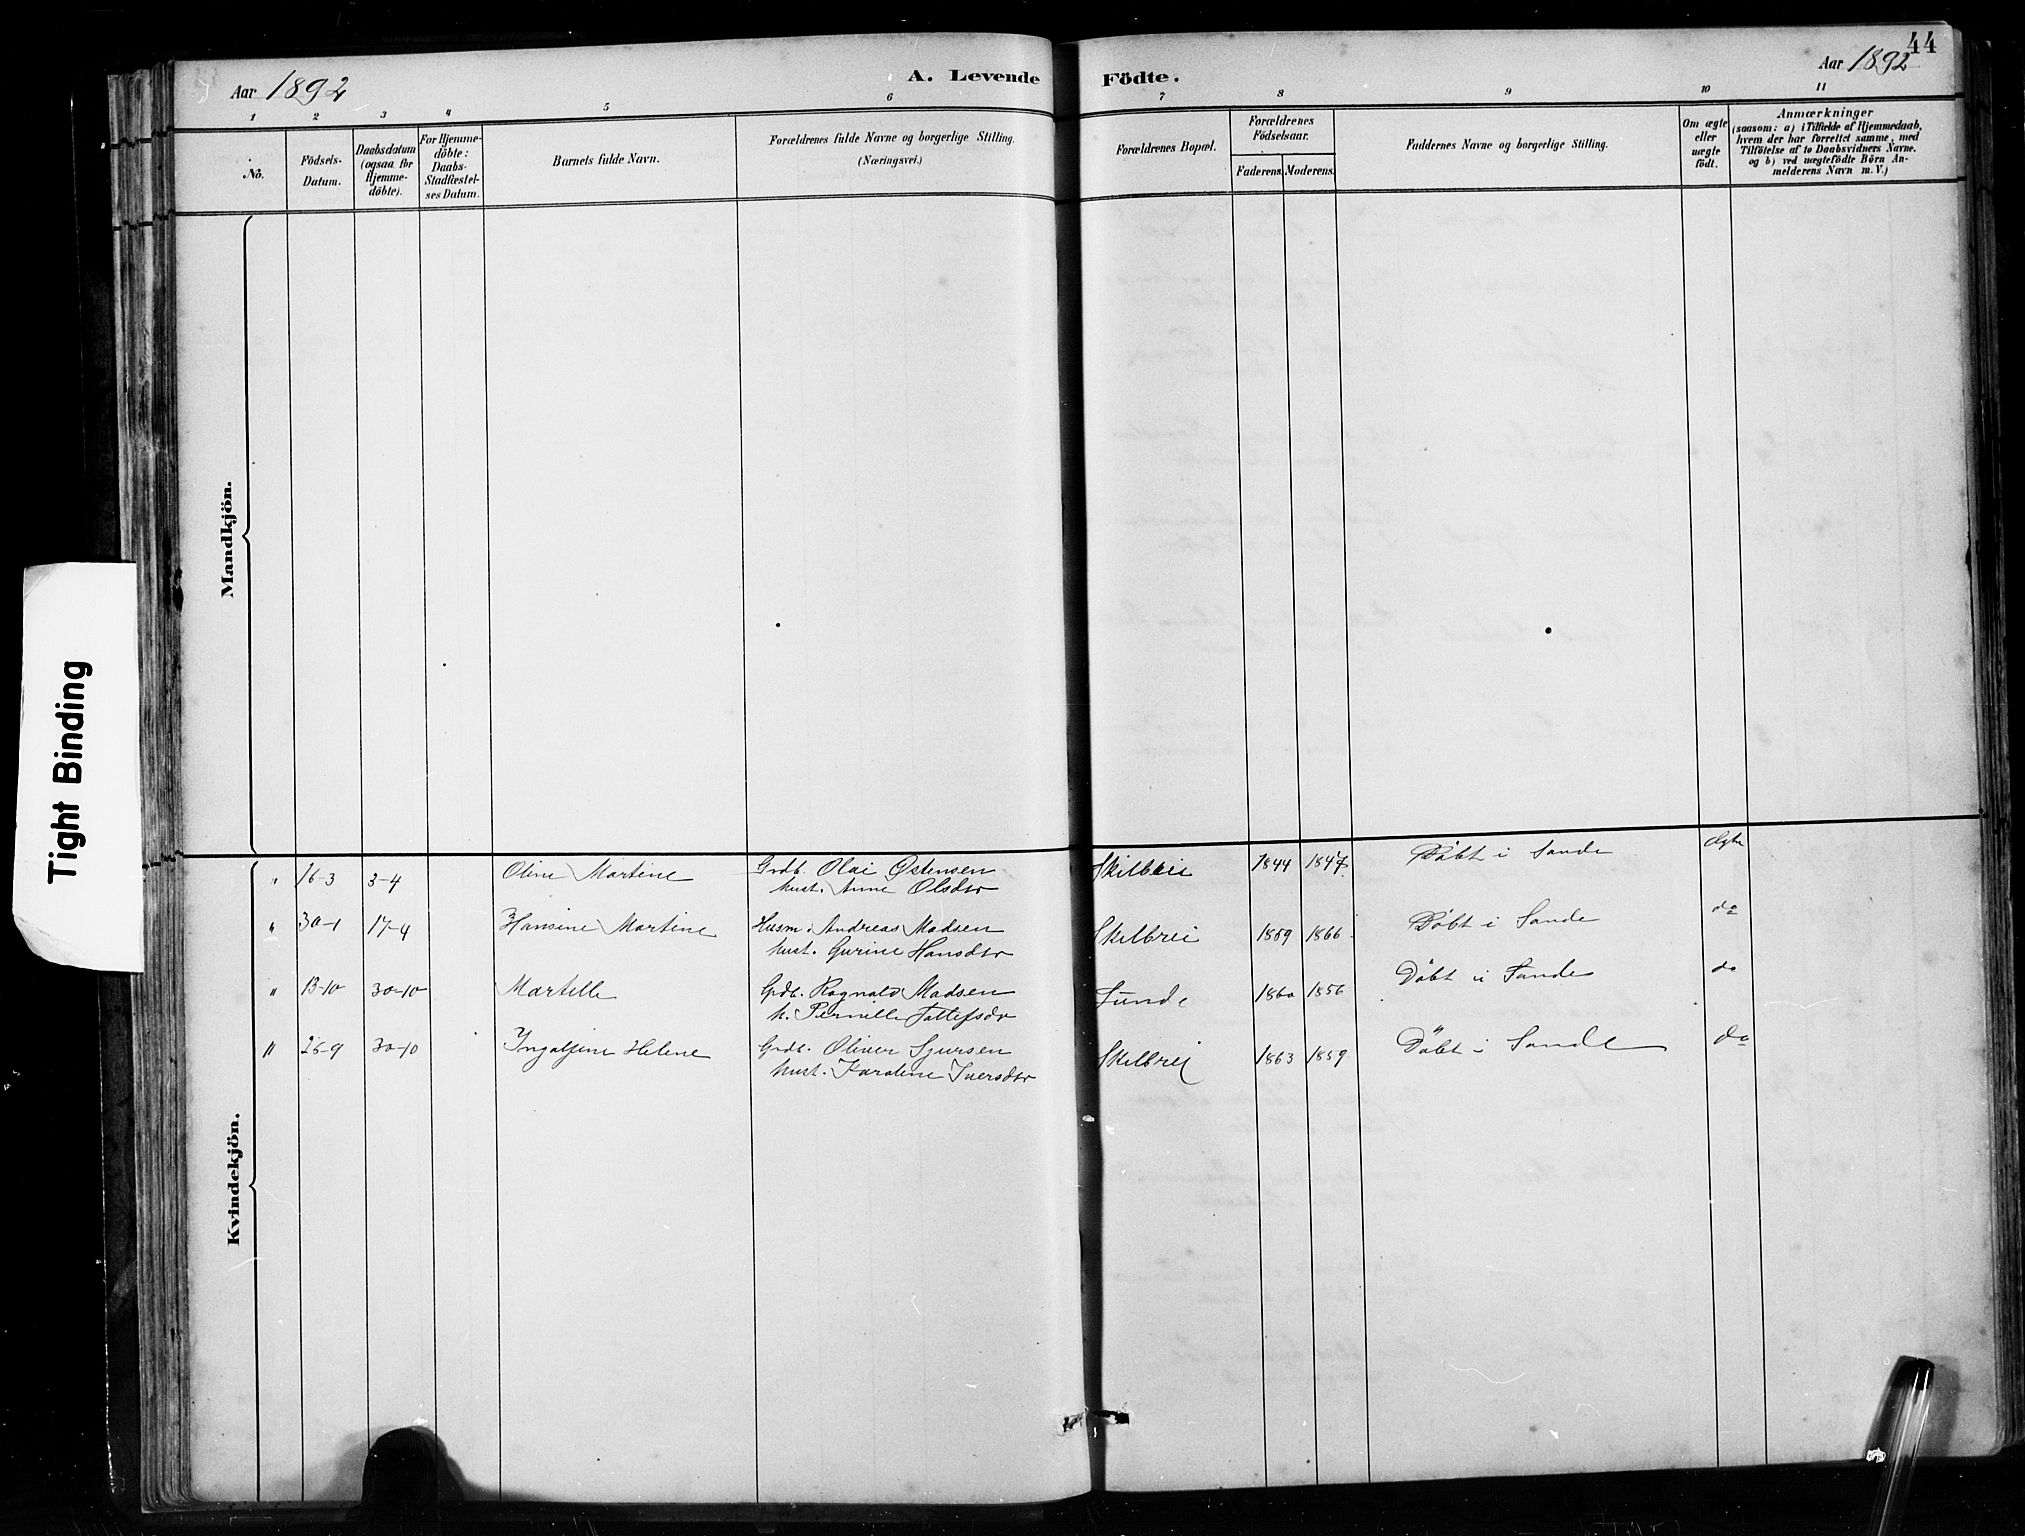 44
Aar 1892
A. Levende Födte.
Aar 1892
1 2 3 4 5 6 7 8 9 10 11
No.
Födsels-
Datum.
Daabsdatum
(ogsaa for
Hjemme-
döbte).
For Hjemme-
döbte:
Daabs-
Stadfæstel-
ses Datum.
Barnets fulde Navn.
Forældrenes fulde Navne og borgerlige Stilling.
(Næringsvei.)
Forældrenes Bopæl.
Forældrenes
Födselsaar.
Faderens. Moderens.
Faddernes Navne og borgerlige Stilling.
Om ægte
eller
uægte
födt.
Anmærkninger
(saasom: a) i Tilfælde af Hjemmedaab,
hvem der har forrettet samme, med
Tilföielse af to Daabsvidners Navne.
og b) ved uægtefödte Börn An-
melderens Navn m. V.)
Mandkjön.
Tight Binding
Kvindekjön.
" 16-3 3-4 Oline Martine Grdb. Olai Østensen Skilbrei 1844 1847 Døbt i Sande Ægte
hust. Anne Olsdtr
" 30-1 17-4 Hansine Martine Husm. Andreas Madsen Skilbrei 1859 1866 Døbt i Sande do
hust. Gurine Hansdtr
" 13-10 30-10 Martelle Grdb. Ragnald Madsen Sunde 1860 1856 Døbt i Sande do
h. Pernille Tollefsdr
" 25-9 30-10 Helene Grdb. Oliver Sjursen Skilbrei 1863 1859 Döbt i Sande do
hust. Karoline Iversdtr